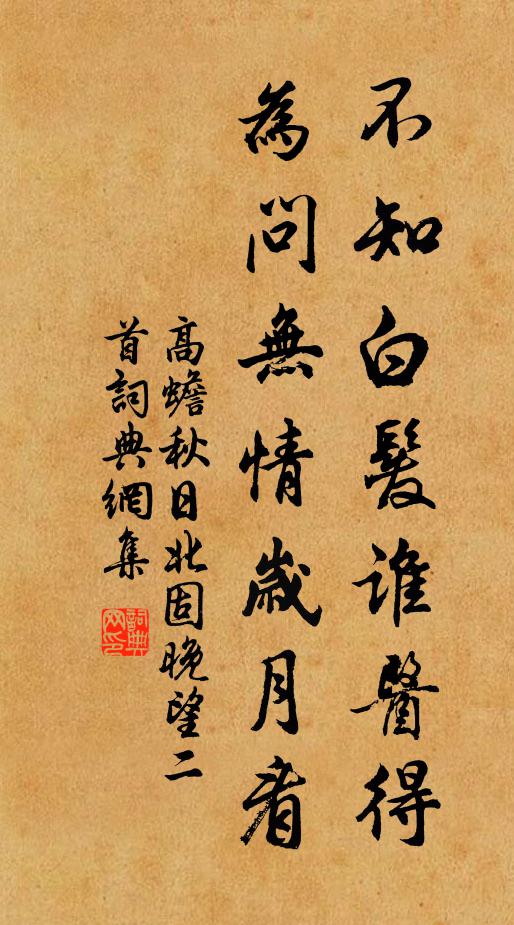 不知白髮誰醫得
為問無情歲月看
高蟾秋日北固晚望二
首詞典網集
詞典網印